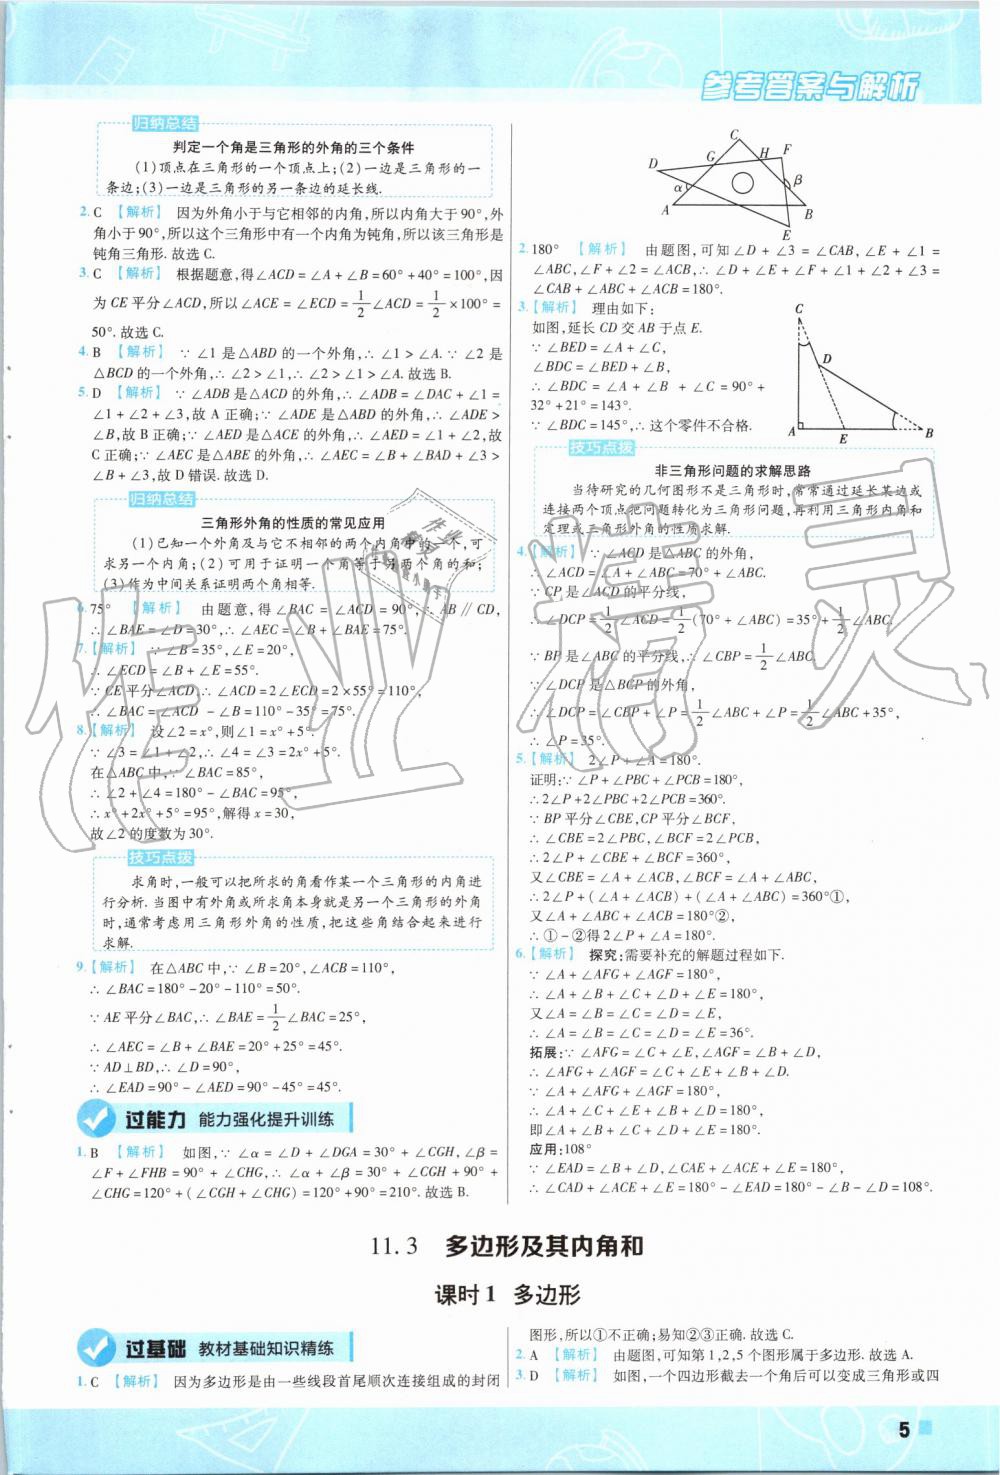 参考答案与解析
归纳总结
判定一个角是三角形的外角的三个条件
(1)顶点在三角形的一个顶点上;(2)一边是三角形的一
条边;(3)一边是三角形的另一条边的延长线.
2. C 【解析】 因为外角小于与它相邻的内角,所以内角大于90°,外
角小于90°,所以这个三角形中有一个内角为钝角,所以该三角形是
钝角三角形.故选C.
3. C 【解析】 根据题意,得∠ACD=∠A+∠B=60°+40°=100°,因
为CE平分∠ACD,所以∠ACE=∠ECD=1/2∠ACD=1/2×100°=
50°.故选C.
4. B 【解析】 ∵∠1是△ABD的一个外角,∴∠1>∠A.∵∠2是
△BCD的一个外角,∴∠2>∠1,∴∠2>∠1>∠A.故选B.
5. D 【解析】 ∵∠ADB是△ACD的外角,∴∠ADB=∠DAC+∠1=
∠1+∠2+∠3,故A正确;∵∠ADE是△ABD的外角,∴∠ADE>
∠B,故B正确;∵∠AED是△ACE的外角,∴∠AED>∠1+∠2,故
C正确;∵∠AEC是△ABE的外角,∴∠AEC=∠B+∠BAD+∠3>
∠B+∠3,故D错误.故选D.
归纳总结
三角形外角的性质的常见应用
(1)已知一个外角及与它不相邻的两个内角中的一个,可
求另一个内角;(2)可用于证明一个角等于另两个角的和;
(3)作为中间关系证明两个角相等.
6. 75° 【解析】 由题意,得∠BAC=∠ACD=90°,∴AB∥CD,
∴∠BAE=∠D=30°,∴∠AEC=∠B+∠BAE=75°.
7.【解析】 ∵∠B=35°,∠E=20°,
∴∠ECD=∠B+∠E=55°.
∵CE平分∠ACD,∴∠ACD=2∠ECD=2×55°=110°,
∴∠BAC=∠ACD-∠B=110°-35°=75°.
8.【解析】 设∠2=x°,则∠1=x°+5°.
∵∠3=∠1+∠2,∴∠4=∠3=2x°+5°.
在△ABC中,∵∠BAC=85°,
∴∠2+∠4=180°-∠BAC=95°,
∴x°+2x°+5°=95°,解得x=30,
故∠2的度数为30°.
技巧点拨
求角时,一般可以把所求的角看作某一个三角形的内角进
行分析.当图中有外角或所求角本身就是另一个三角形的外角
时,通常考虑用三角形外角的性质,把这些角结合起来进行
求解.
9.【解析】 在△ABC中,∵∠B=20°,∠ACB=110°,
∴∠BAC=180°-20°-110°=50°.
∵AE平分∠BAC,∴∠BAE=1/2∠BAC=25°,
∴∠AEC=∠B+∠BAE=20°+25°=45°.
∵AD⊥BD,∴∠D=90°,
∴∠EAD=90°-∠AED=90°-45°=45°.
过能力 能力强化提升训练
1. B 【解析】 如图,∵∠α=∠D+∠DGA=30°+∠CGH,∠β=
∠F+∠FHB=90°+∠CHG,∴∠α+∠β=30°+∠CGH+90°+
∠CHG=120°+(∠CGH+∠CHG)=120°+90°=210°.故选B.
C
D G H F
α β
A B
E
2. 180° 【解析】 由题图,可知∠D+∠3=∠CAB,∠E+∠1=
∠ABC,∠F+∠2=∠ACB,∴∠D+∠E+∠F+∠1+∠2+∠3=
∠CAB+∠ABC+∠ACB=180°.
3.【解析】 理由如下:
如图,延长CD交AB于点E.
∵∠BED=∠A+∠C,
∠BDC=∠BED+∠B,
∴∠BDC=∠A+∠B+∠C=90°+
32°+21°=143°.
∵∠BDC=145°,∴这个零件不合格.
C
D
A E B
技巧点拨
非三角形问题的求解思路
当待研究的几何图形不是三角形时,常常通过延长某边或
连接两个顶点把问题转化为三角形问题,再利用三角形内角和
定理或三角形外角的性质求解.
4.【解析】 ∵∠ACD是△ABC的外角,
∴∠ACD=∠A+∠ABC=70°+∠ABC.
∵CP是∠ACD的平分线,
∴∠DCP=1/2∠ACD=1/2(70°+∠ABC)=35°+1/2∠ABC.
∵BP是∠ABC的平分线,∴∠CBP=1/2∠ABC.
∵∠DCP是△BCP的外角,
∴∠DCP=∠CBP+∠P=1/2∠ABC+∠P=1/2∠ABC+35°,
∴∠P=35°.
5.【解析】 2∠P+∠A=180°.
证明:∵∠P+∠PBC+∠PCB=180°,
∴2∠P+2∠PBC+2∠PCB=360°.
∵BP平分∠CBE,CP平分∠BCF,
∴∠CBE=2∠PBC,∠BCF=2∠PCB,
∴2∠P+∠CBE+∠BCF=360°,
又∠CBE=∠A+∠ACB,∠BCF=∠A+∠ABC,
∴2∠P+(∠A+∠ACB)+(∠A+∠ABC)=360°①,
又∠A+∠ABC+∠ACB=180°②,
∴①-②得2∠P+∠A=180°.
6.【解析】 探究:需要补充的解题过程如下.
∵∠A+∠AFG+∠AGF=180°,
∴∠A+∠B+∠C+∠D+∠E=180°,
又∠A=∠B=∠C=∠D=∠E,
∴∠A=∠B=∠C=∠D=∠E=36°.
拓展:∵∠AFG=∠C+∠E,∠AGF=∠B+∠D,
∴∠AFG+∠AGF=∠C+∠E+∠B+∠D.
∵∠A+∠AFG+∠AGF=180°,
∴∠A+∠C+∠E+∠B+∠D=180°,
即∠A+∠B+∠C+∠D+∠E=180°.
应用:108°
∵∠EAD=∠B+∠D,∠CAE+∠ACE+∠E=180°,
∴∠CAD+∠ACE+∠E=180°-∠EAD=180°-∠B-∠D=108°.
11.3 多边形及其内角和
课时1 多边形
过基础 教材基础知识精练
1. C 【解析】 因为多边形是由一些线段首尾顺次连接组成的封闭
图形,所以①不正确;易知②③正确.故选C.
2. A 【解析】 由题图,可知第1,2,5个图形属于多边形.故选A.
3. D 【解析】 如图,一个四边形截去一个角后可以变成三角形或四
5
作业精灵